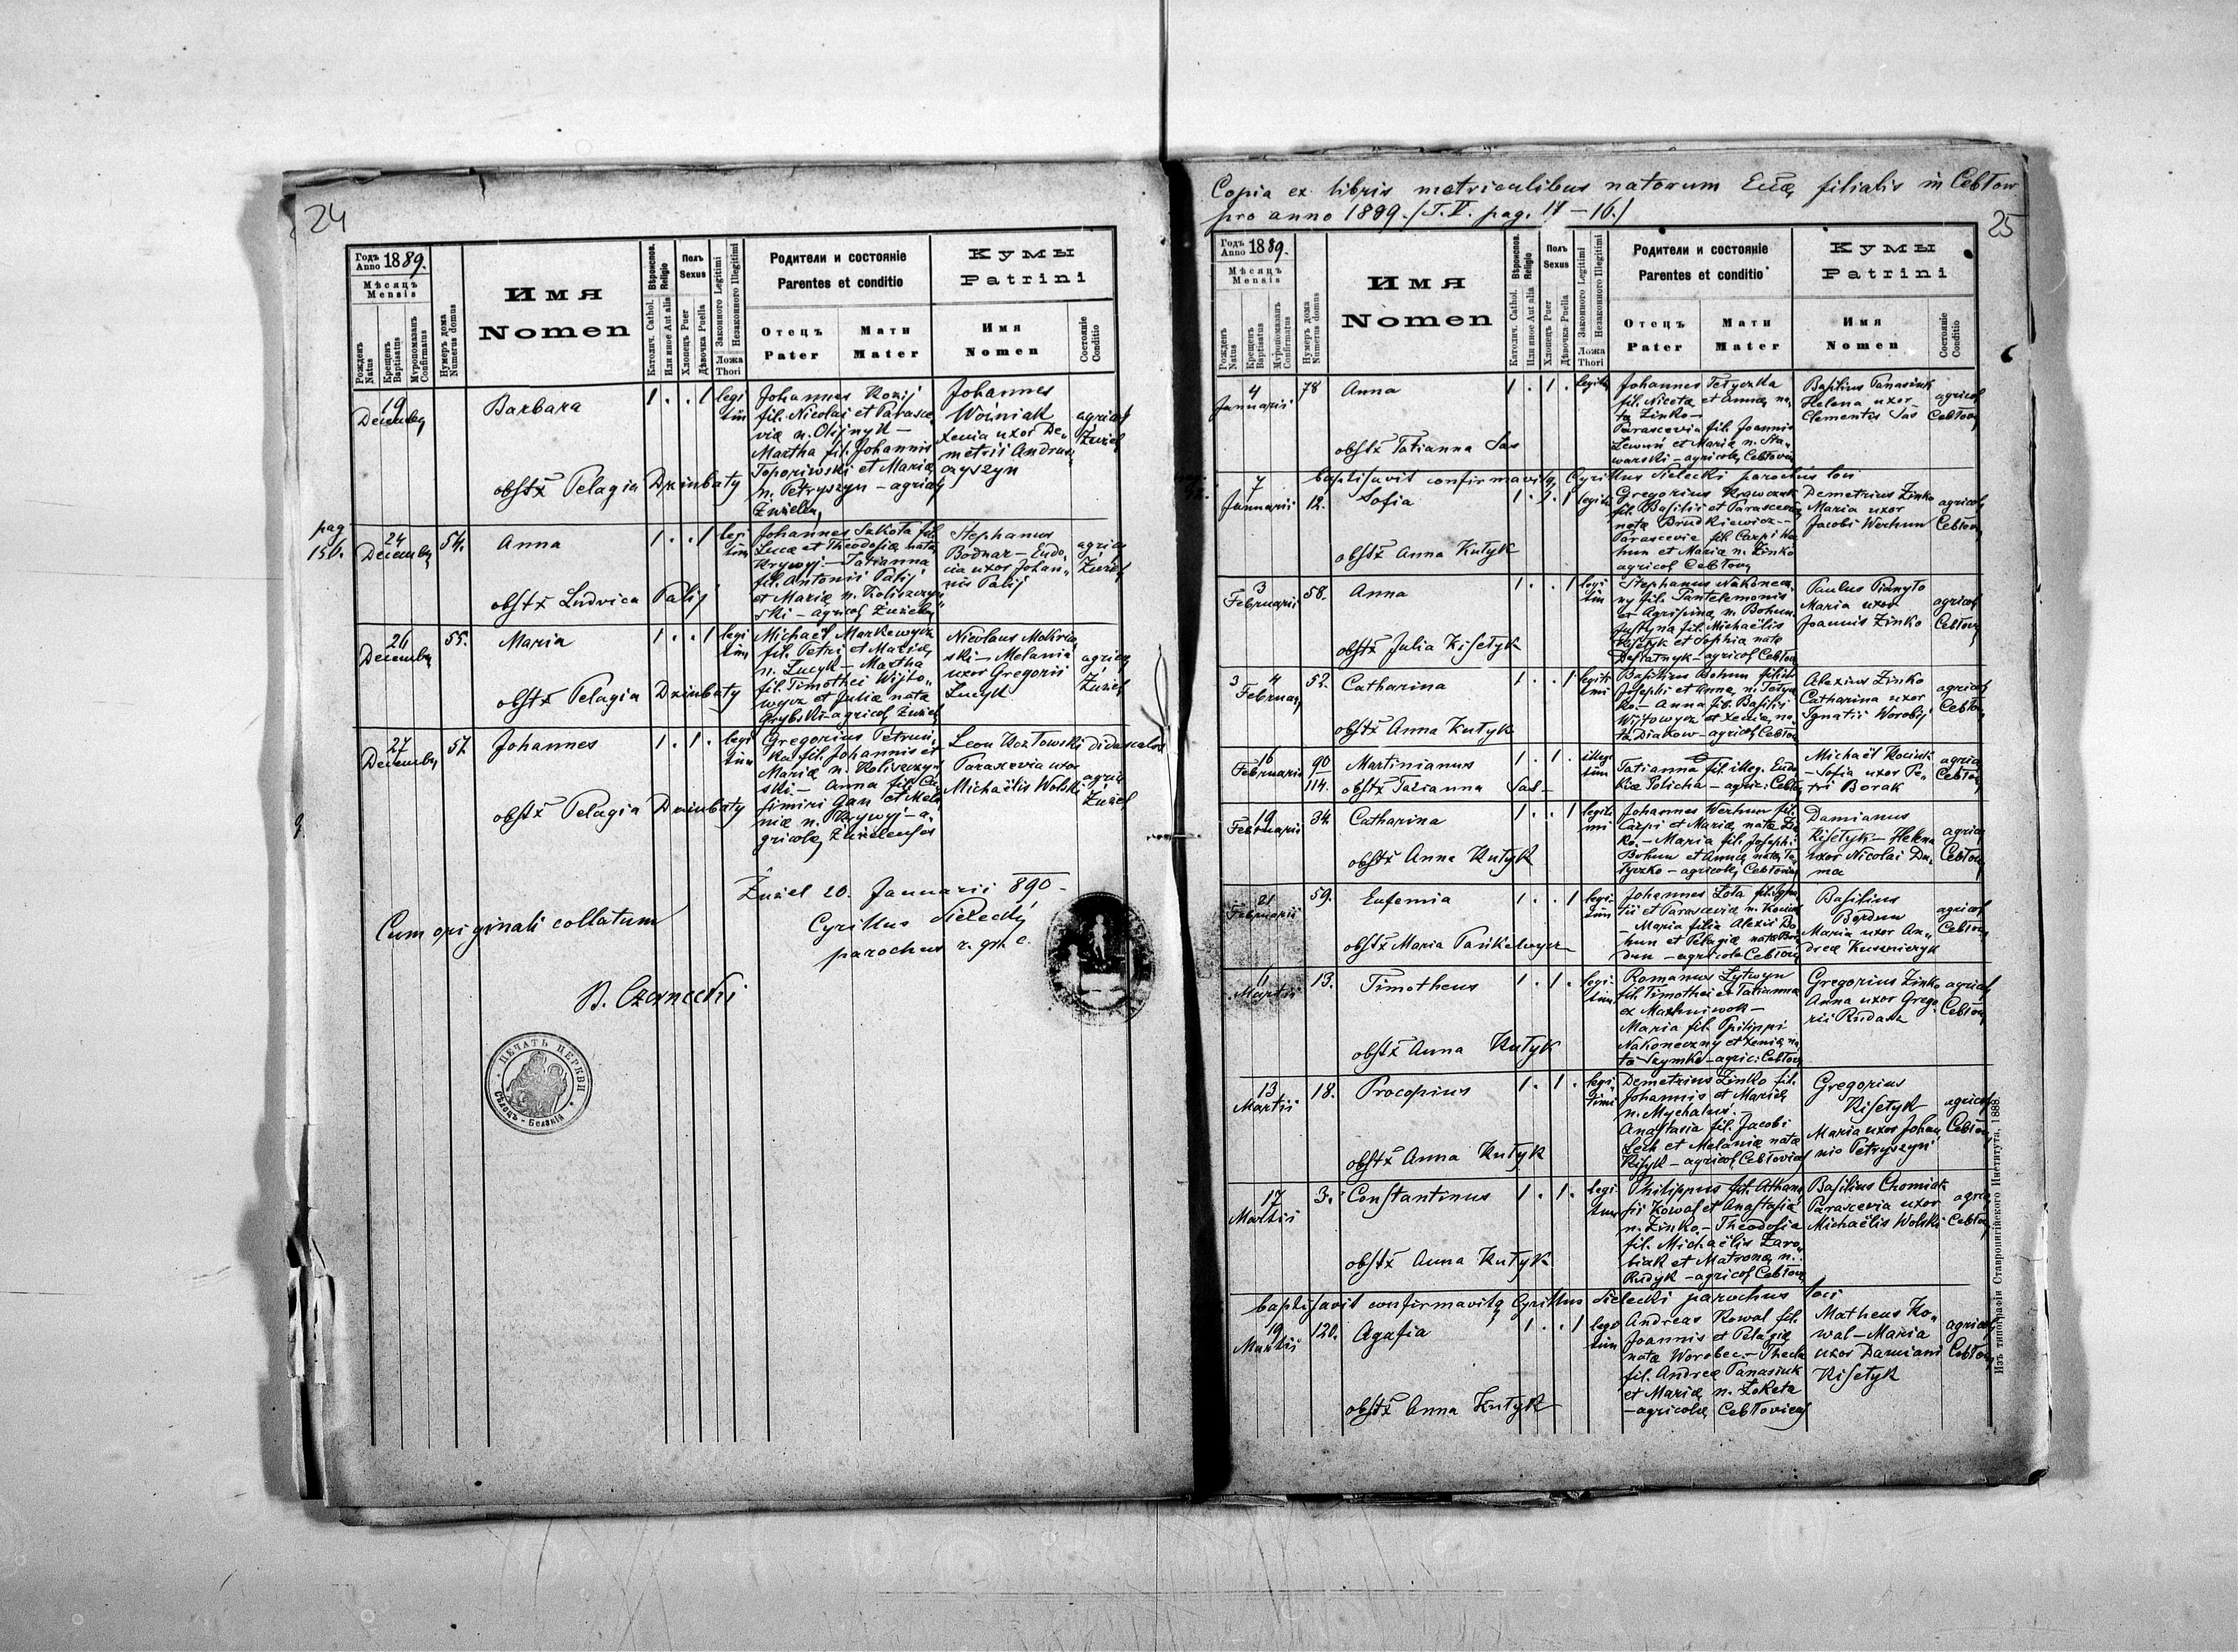 24
Годъ Anno 1889.
Мѣсяцъ
Mensis
Рожденъ Natus
Крещенъ Baptisatus
Мѵропомазанъ Confirmatus
Нумеръ дома
Numerus domus
Имя
Nomen
Вѣроиспов.
Religio
Католич. Cathol.
Или иное Aut alia
Полъ
Sexus
Хлопецъ Puer
Дѣвочка Puella
Законного Legitimi
Незаконного Illegitimi
Ложа
Thori
Родители и состояніе
Parentes et conditio
Отецъ Мати
Pater Mater
Кумы
Patrini
Имя
Nomen
Состояніе
Conditio
19
Decembr
Barbara
obstx Pelagia Dziubaty
1 . . 1
legi
tim
Johannes Kozij
fil. Nicolai et Parasce
viæ n. Olijnyk –
Martha fil. Johannis
Toporiwski et Mariæ
n. Petryszyn – agricol
Zuzielen
Johannes
Woźniak
Xenia uxor De„
metrii Andrus
czyszyn
agricol
Żużel
pag
15b.
24
Decembr
54.
Anna
obstx Ludvica Palij
1 . . 1
legi
tim
Johannes Sakota fil.
Lucæ et Theodosiæ nata
Krywyj. – Tatianna
fil. Antonii Palij
et Mariæ n. Koliszczyn
ski – agricol Zuzielen
Stephanus
Bodnar – Eudo„
cia uxor Johan„
nis Palij
agricol
Żużel
26
Decembr
55.
Maria
obstx Pelagia Dziubaty
1 . . 1
legi
tim
Michaël Markewycz
fil. Petri et Mariæ
n. Lucyk – Martha
fil. Timothei Wijto„
wycz et Juliæ nata
Hrybski – agricol Zuziel
Nicolaus Mokrin
ski – Melania
uxor Gregorii
Lucyk
agricol
Żużel
27
Decembr
57.
Johannes
obstx Pelagia Dziubaty
1 . 1 .
legi
tim
Gregorius Petrusi„
ka fil. Johannis et
Mariæ n. Koliszczyn
ski. – Anna fil. Ca
simiri Gan et Mela
niæ n. Krywyj – a„
gricolæ Zuzielenses
Leon Kozłowski didascalos
Parascevia uxor
Michaëlis Wolski agric
Żużel
Żużel 20. Januarii 890 –
Cyrillus Sielecki
parochus r. gr. c.
Cum originali collatum
B. Czernecki
ПЕЧАТЬ ЦЕРКВИ
Сѣлецъ - Белзкій
Copia ex libris metricalibus natorum Eccle filialis in Cebłow
pro anno 1889. /T. V. pag. 14 – 16./
25
Годъ Anno 1889.
Мѣсяцъ
Mensis
Рожденъ Natus
Крещенъ Baptisatus
Мѵропомазанъ Confirmatus
Нумеръ дома
Numerus domus
Имя
Nomen
Вѣроиспов.
Religio
Католич. Cathol.
Или иное Aut alia
Полъ
Sexus
Хлопецъ Puer
Дѣвочка Puella
Законного Legitimi
Незаконного Illegitimi
Ложа
Thori
Родители и состояніе
Parentes et conditio
Отецъ Мати
Pater Mater
Кумы
Patrini
Имя
Nomen
Состояніе
Conditio
4
Januarii
78
Anna
obstx Tatianna Sas
1 . 1 .
legiti
Johannes Tetyczka
fil. Nicetæ et Annæ na„
ta Zinko –
Parascevia fil. Joannis
Lewuń et Mariæ n. Sta„
warski – agricolæ Cebłovien
Basilius Panasiuk
Helena uxor
Clementis Sas
agricol
Cebłov
baptisavit confirmavitq Cyrillus Sielecki parochus loci
7
Januarii
12.
Sofia
obstx Anna Kutyk
1 . . 1
legiti
Gregorius Krawczuk
fil. Basilii et Parasceviæ
nata Brudkiewicz –
Parascevia fil. Carpi Wa
hun et Mariæ n. Zinko
agricol Cebłov
Demetrius Zinko
Maria uxor
Jacobi Werhun
agricol
Cebłov
3
Februarii
58.
Anna
obstx Julia Kisetyk
1 . . 1
legi
tim
Stephanus Nakonecz
ny fil. Pantelemonis
et Agripinæ n. Bohun
Justyna fil. Michaëlis
Kisetyk et Sophia nata
Dostatnyk – agricol Cebłov
Paulus Pianyto
Maria uxor
Joannis Zinko
agricol
Cebłov
3 4
Februar
52.
Catharina
obstx Anna Kutyk
1 . . 1
legiti
timi
Basilius Bohun filius
Josephi et Annæ n. Tetycz
ko. – Anna fil. Basilii
Wijtowycz et Xeniæ na„
ta Diakow – agricol Cebłov
Alexius Zinko
Catharina uxor
Ignatii Worobij
agricol
Cebłov
16
Februarii
90
114.
Martinianus
obstx Tatianna Sas –
1 . 1 .
illegi
tim
Tatianna fil. illeg. Eudo
xiæ Policha – agric: Cebłov
Michaël Kociuk
– Sofia uxor Pe„
tri Borak
agricol
Cebłov
19
Februarii
34.
Catharina
obstx Anna Kutyk
1 . . 1
legiti
mi
Johannes Werhun fil.
Carpi et Mariæ nata Zin
ko. – Maria fil. Josephi
Bohun et Annæ nata Te
tyczko – agricolæ Cebłovien
Damianus
Kisetyk – Helena
uxor Nicolai Du„
ma
agricol
Cebłov
21
Februarii
59.
Eufemia
obstx Maria Pańkewycz
1 . . 1
legi
tim
Johannes Łota fil. Igna
tii et Parasceviæ n. Kociuk
– Maria filia Alexii Bo
hun et Pelagiæ nata Bor
dun – agricolæ Cebłov
Basilius
Bordun
Maria uxor An„
dreæ Kusznieryk
agricol
Cebłov
11
Martii
13.
Timotheus
obstx Anna Kutyk
1 . 1 .
legi„
tim
Romanus Lytwyn
fil. Timothei et Tatianna
ex Mathniwok –
Maria fil. Philippi
Nakoneczny et Xeniæ na
ta Szymko – agric: Cebłov
Gregorius Zinko
Anna uxor Grego
rii Rudacz
agricol
Cebłov
13
Martii
18.
Procopius
obstx Anna Kutyk
1 . 1 .
legi„
timi
Demetrius Zinko fil.
Johannis et Mariæ
n. Mychaluś.
Anastasia fil. Jacobi
Lech et Melaniæ nata
Kisyk – agricol Cebłovien
Gregorius
Kisetyk
Maria uxor Johan
nis Petryszyn
agricol
Cebłov
17
Martii
3.
Constantinus
obstx Anna Kutyk
1 . 1 .
legi
tim
Philippus fil. Athana
sii Kowal et Anastasiæ
n. Zinko – Theodosia
fil. Michaëlis Zaro„
biak et Matronæ n.
Rudyk – agricol Cebłov
Basilius Chomiak
Parascevia uxor
Michaëlis Wolski
agric
Cebłov
baptisavit confirmavitq Cyrillus Sielecki parochus loci
19
Martii
120.
Agafia
obstx Anna Kutyk
1 . . 1
legi
tim
Andreas Kowal fil.
Joannis et Pelagiæ
nata Worobec. – Thecla
fil. Andreæ Panasiuk
et Mariæ n. Łoketa
– agricolæ Cebłovien
Matheus Ko„
wal – Maria
uxor Damiani
Kisetyk
agricol
Cebłov
Изъ типографіи Ставропигійского Института, 1888.